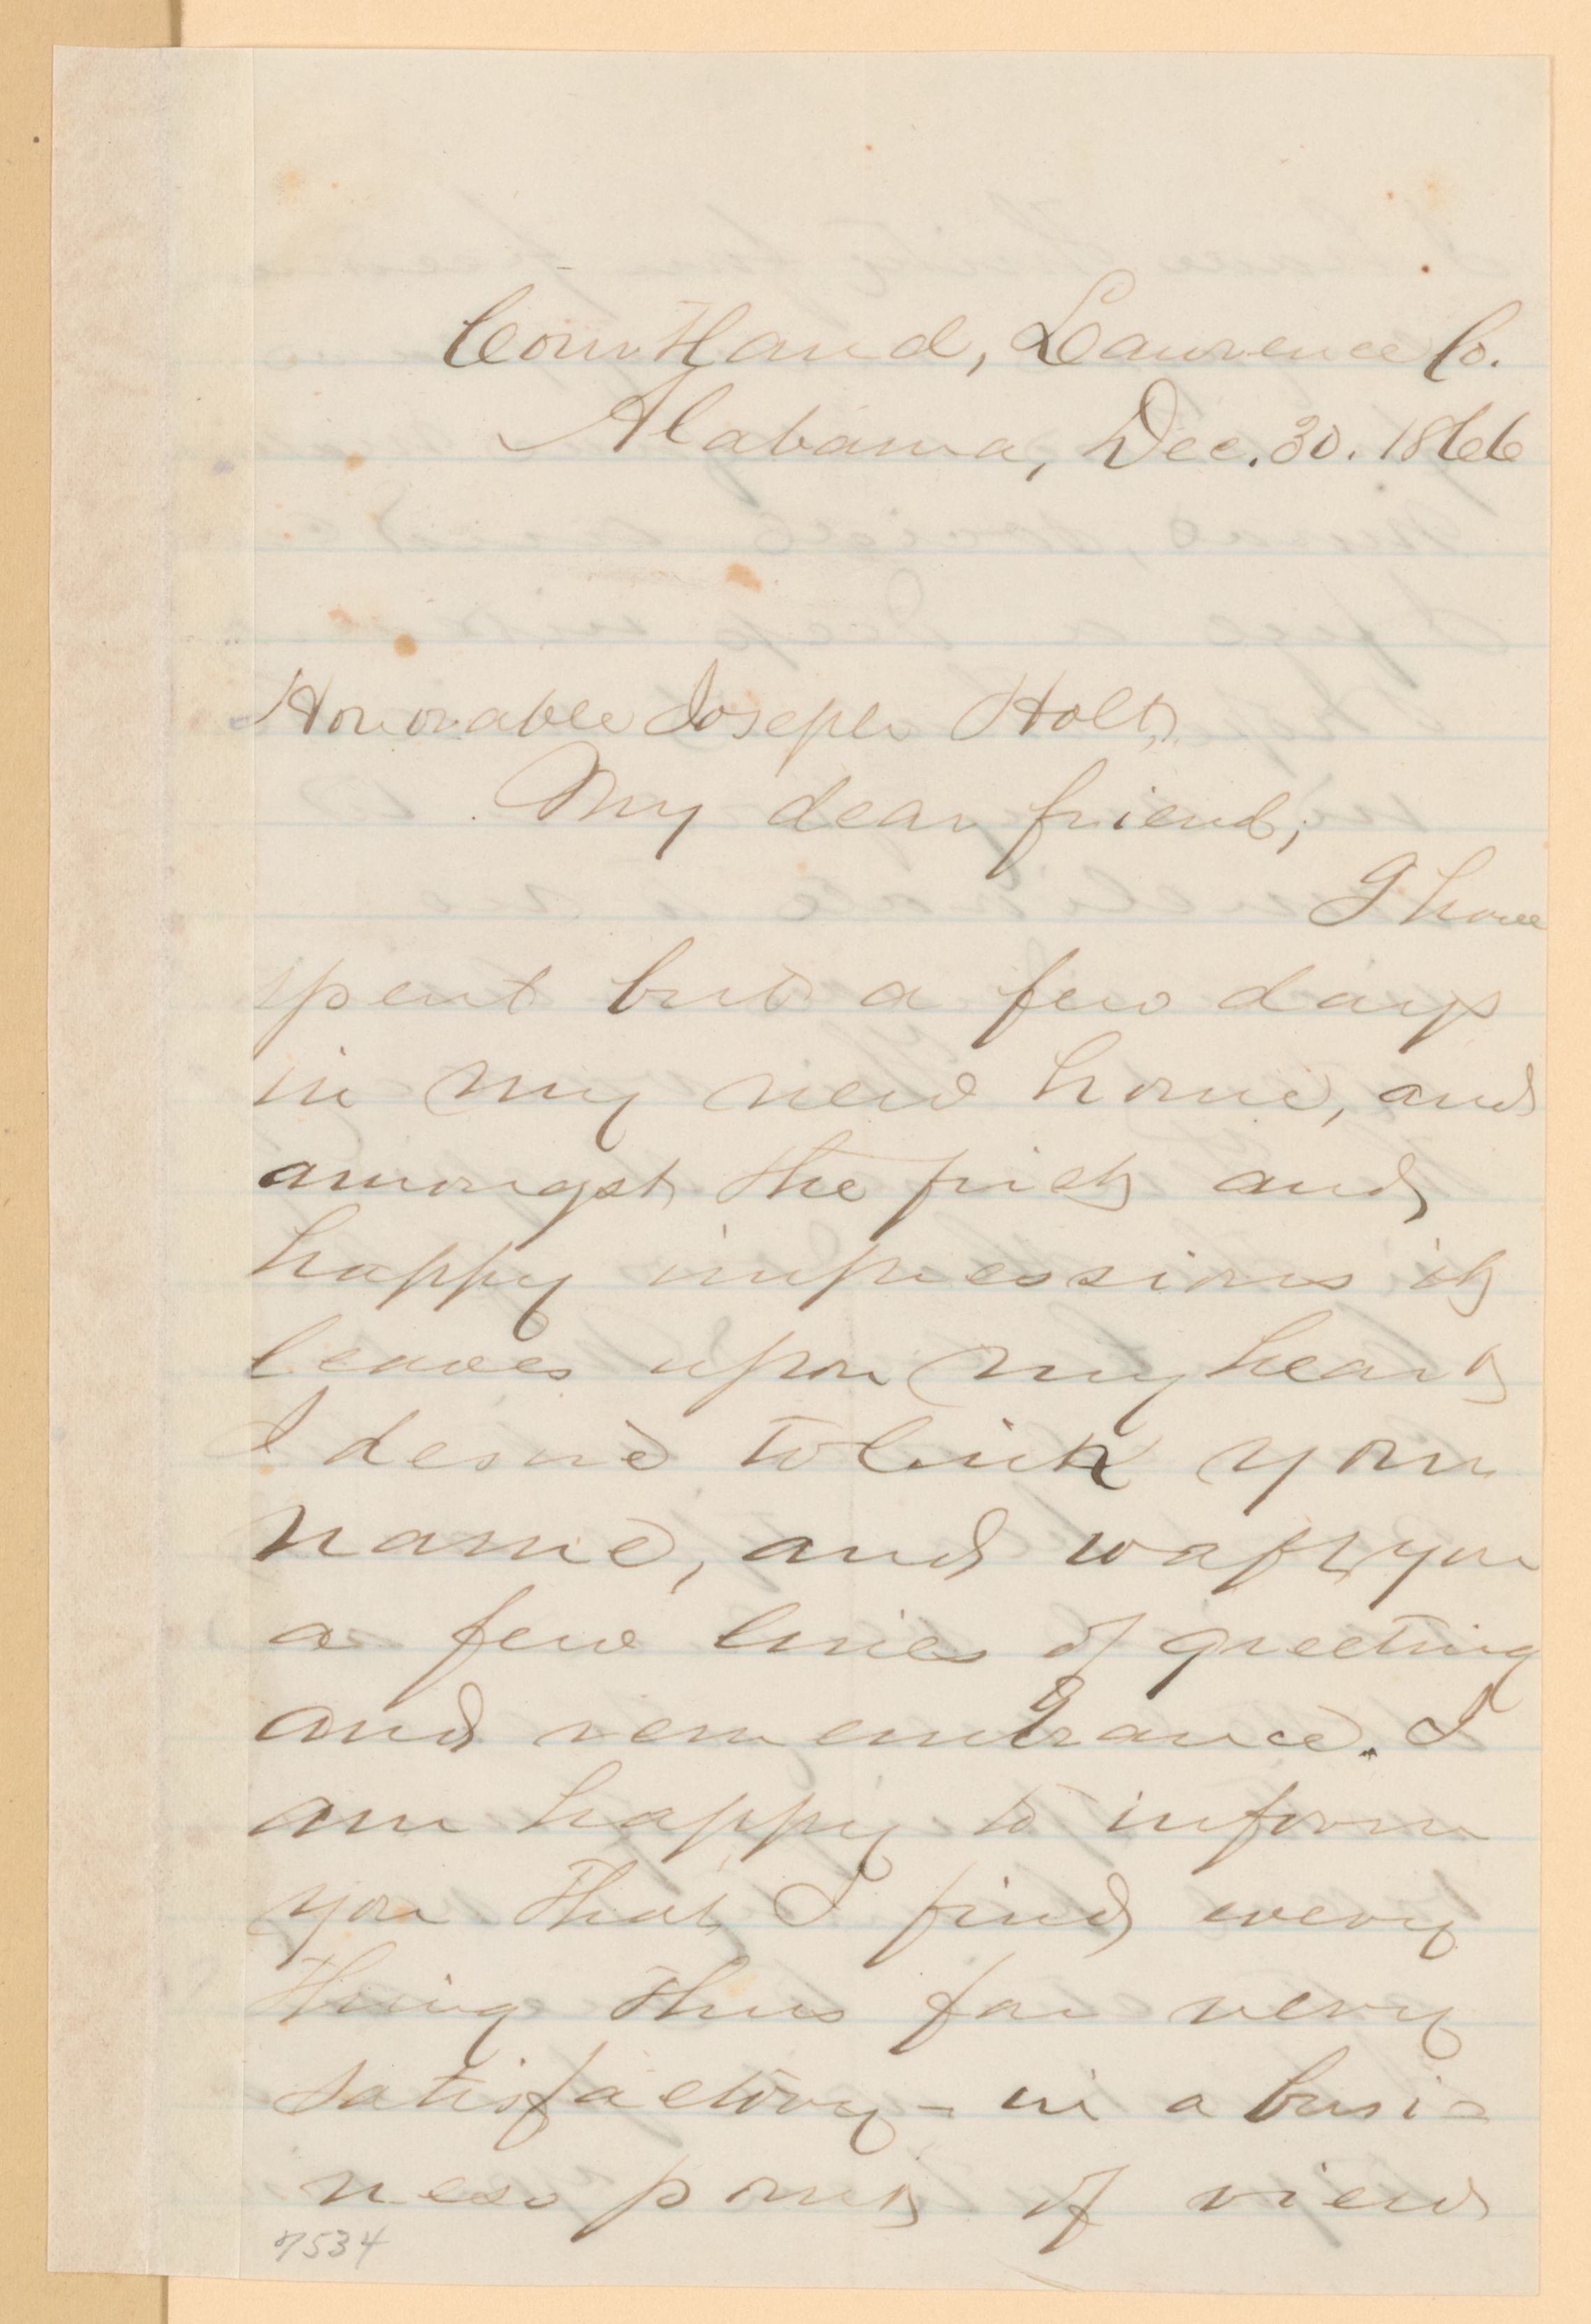 Courtland, Lawrence Co.
Alabama, Dec. 30. 1866
Honorable Joseph Holt,
My dear friend,
I have
spent but a few days
in my new home, and
amongst the first and
happy impressions it
leaves upon my heart
I desire to link your
name, and waft you
a few lines of greeting
and remembrance. I
am happy to inform
you that I find every
thing thus far very
satisfactory - in a busi-
ness point of view
7534